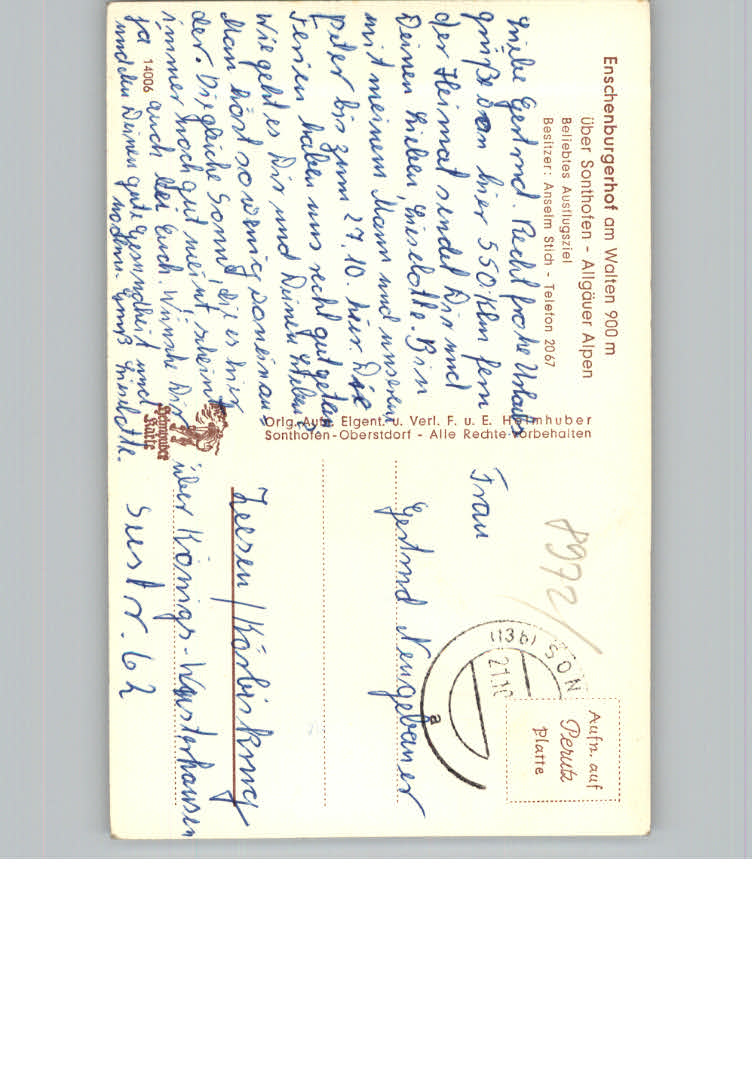 Enschenburgerhof am Walten 900 m
über Sonthofen - Allgäuer Alpen
Beliebtes Ausflugsziel
Besitzer: Anselm Stich - Telefon 2067
Liebe Gertrud. Recht frohe Urlaubs
grüße von hier 550 Klm fern
der Heimat sendet Dir und
Deinen Lieben, Lieselotte. Bin
mit meinem Mann und unserem
Peter bis zum 27.10. hier. Die
Ferien haben uns recht gut getan
Wie geht es Dir und Deinen Lieben
Man hört so wenig voneinan-
der. Die gleiche Sonne, die es hier
immer noch gut meint scheint
ja auch bei Euch. Wünsche Dir
und den Deinen gute Gesundheit und
Gruß Lieselotte.
14006
Orig. Aufn. Eigent. u. Verl. F. u. E. Heimhuber
Sonthofen-Oberstdorf - Alle Rechte vorbehalten
Heimhuber
Karte
8972/
(13b) SON
21.10
a
Aufn. auf
Perutz
Platte
Frau
Gertrud Neugebauer
Zeesen / Körbiskrug
über Königs-Wusterhausen
62